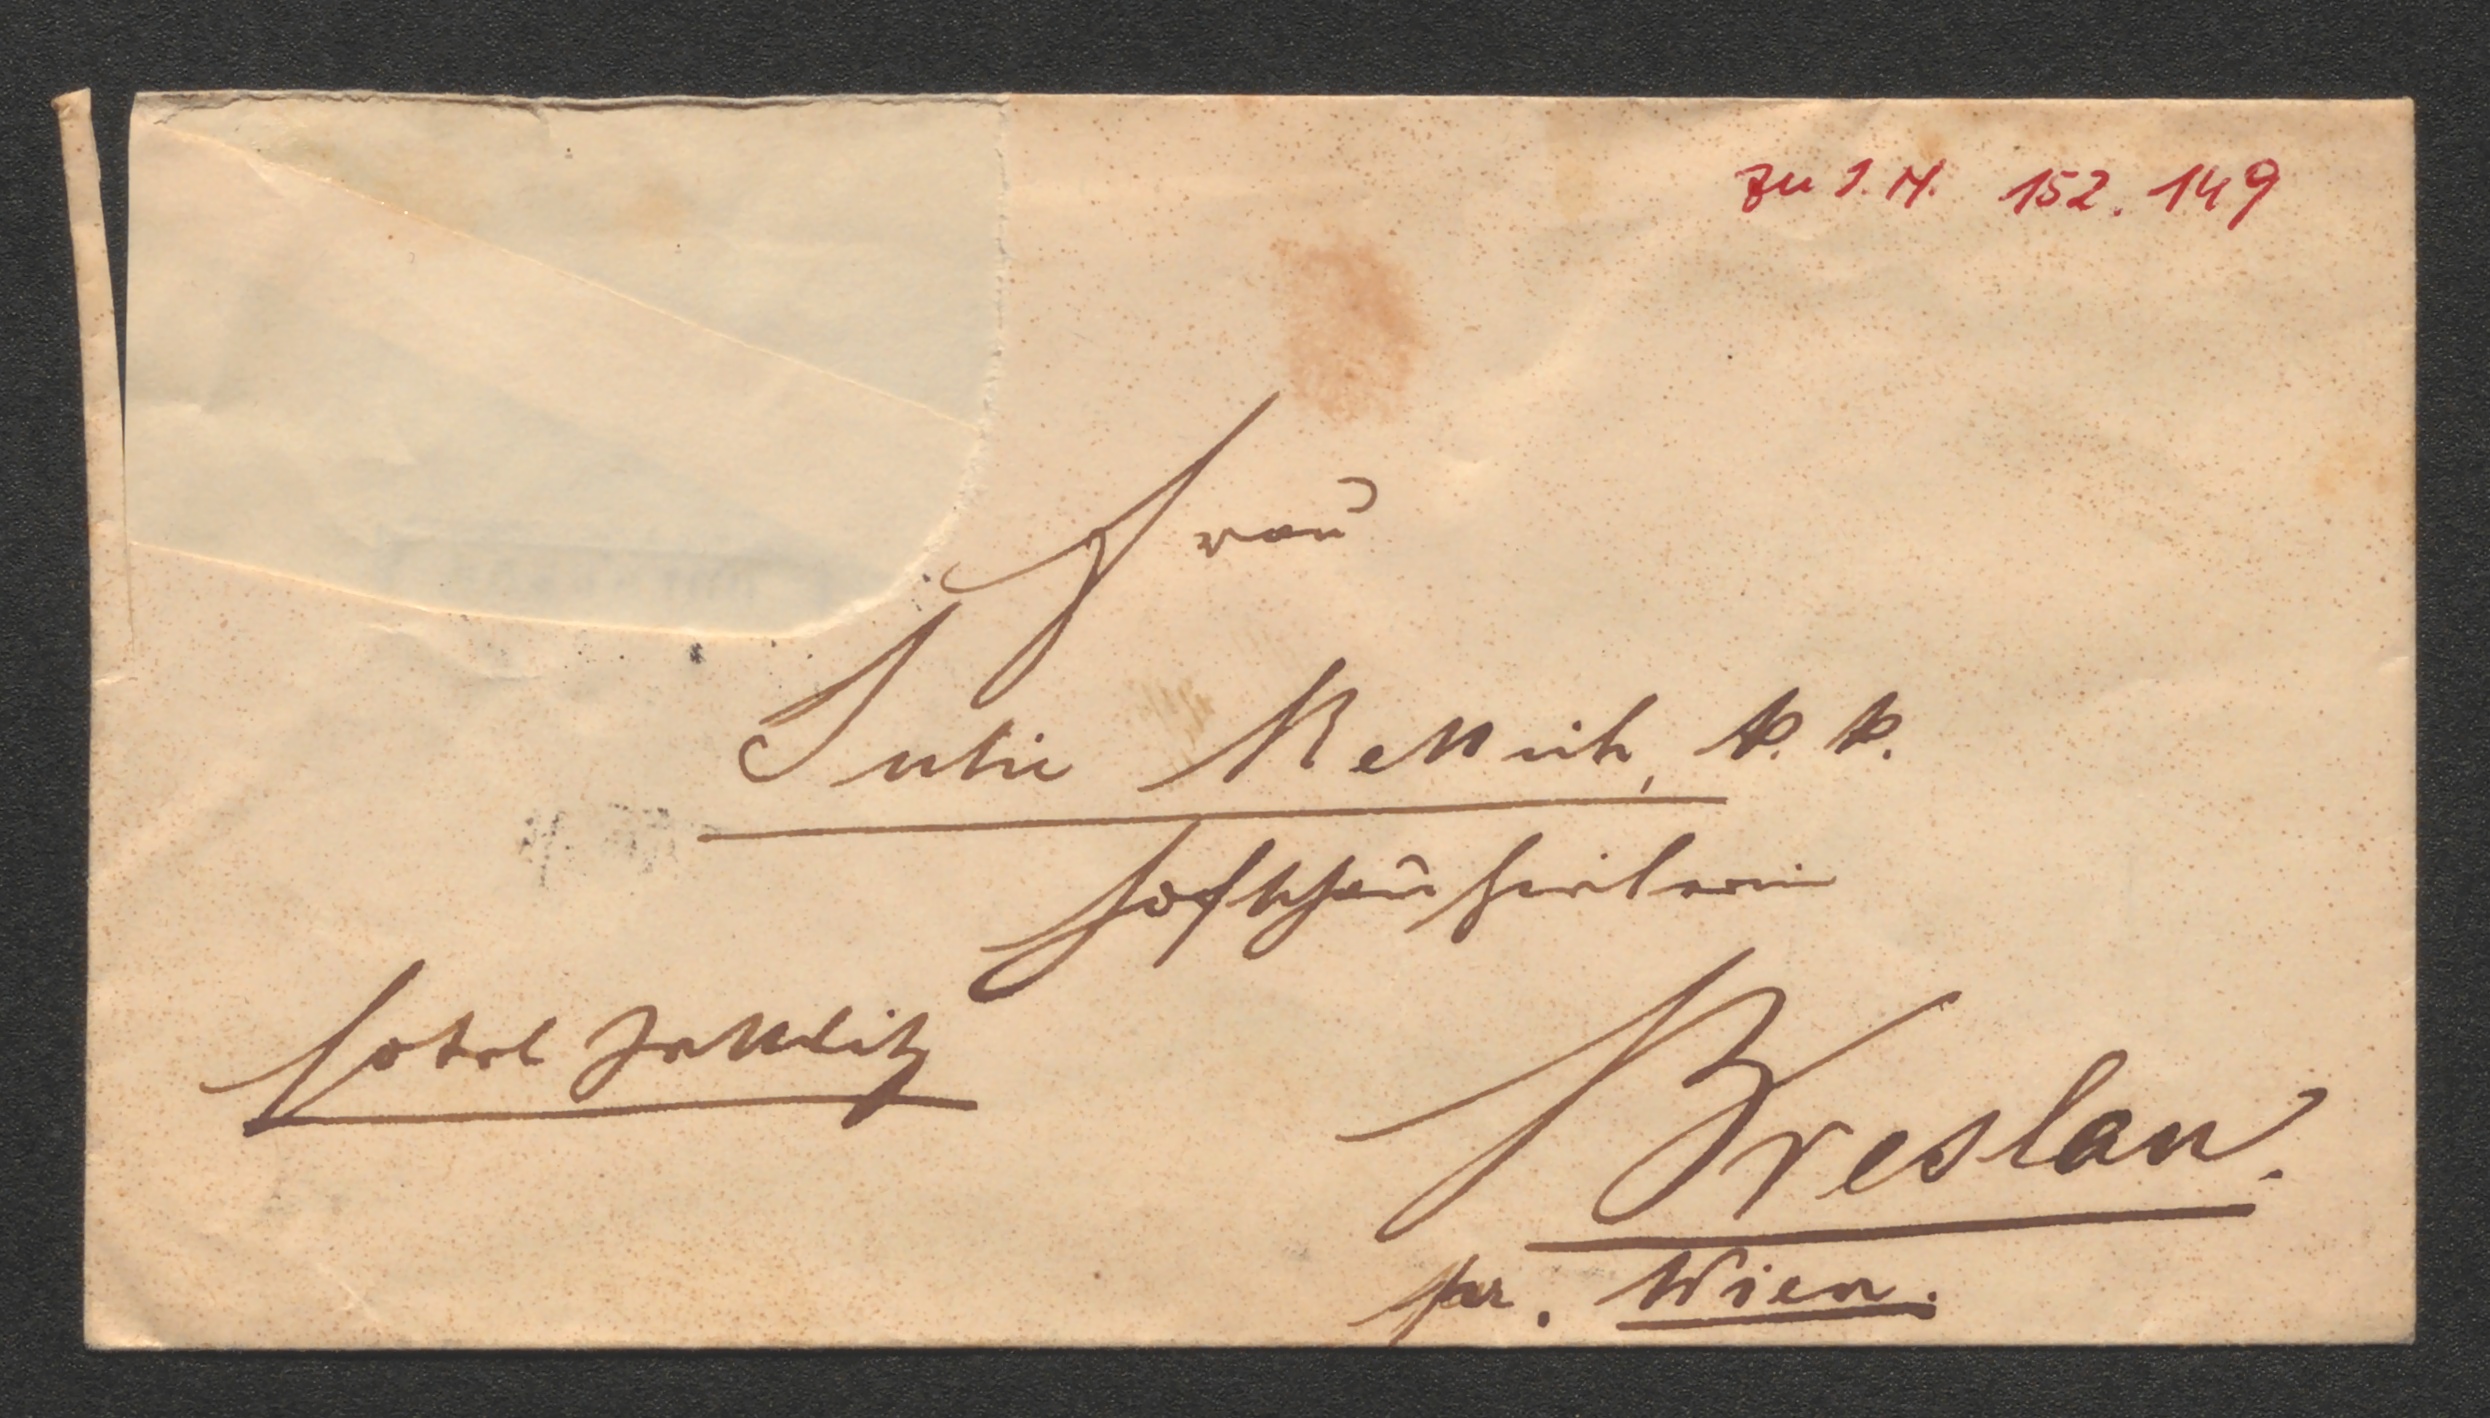 zu I.N. 152.149
Frau
Julie Rettich, k. k.
Hofschauspielerin
Hotel Zettlitz
Breslau.
per. Wien.